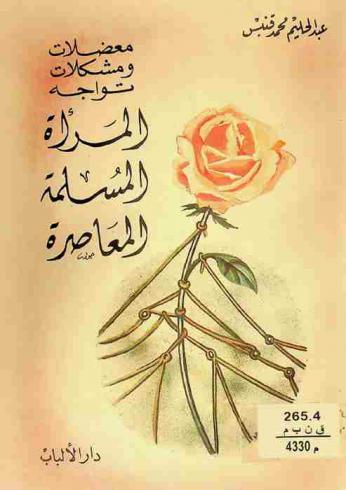 عبد الحليم محمد قنبس
معضلات
ومشكلات
تواجه
المرأة
المسلمة
المعاصرة
265.4
ق ن ب م
م 4330
دار الألباب